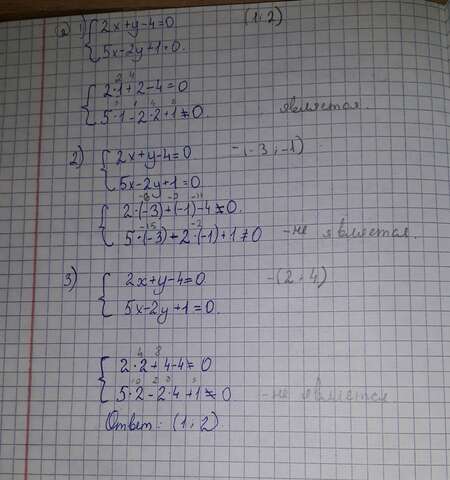 а) 1) { 2x+y-4=0 (1;2)
5x-2y+1=0.
2 4
{ 2·1+2-4=0
5·1-2·2+1≠0. является.
2) { 2x+y-4=0 -(-3;-1)
5x-2y+1=0
{ 2·(-3)+(-1)-4≠0.
-15 -2
5·(-3)+2·(-1)+1≠0 -не является.
3) { 2x+y-4=0. -(2;4)
5x-2y+1=0.
4 8
{ 2·2+4-4=0
5·2-2·4+1≠0. -не является.
Ответ: (1;2)